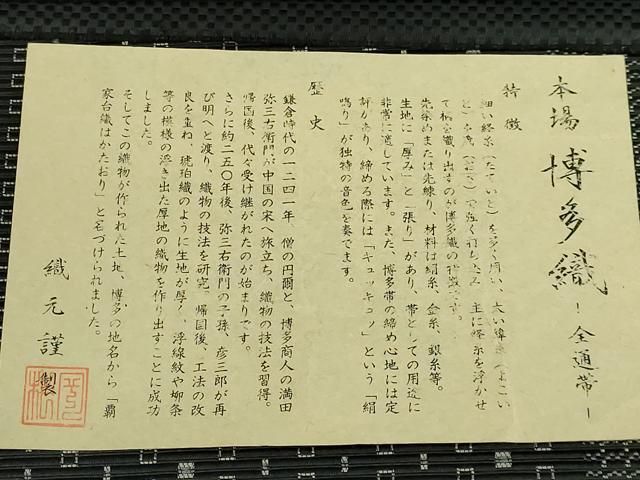 本場 博多織 ー全通帯ー
特徴
細い経糸(たていと)を多く用い、太い緯糸(よこい
と)を 強く打ち込み、主に経糸を浮かせ
て柄を織り出すのが博多織の特徴です。
先染めまたは先練り、材料は絹糸、金糸、銀糸等。
生地に「厚み」と「張り」があり、帯としての用途に
非常に適しています。また、博多帯の締め心地には定
評があり、締める際には「キュッキュッ」という「絹
鳴り」が独特の音色を奏でます。
歴史
鎌倉時代の一二四一年、僧の円爾と、博多商人の満田
弥三右衛門が中国の宋へ旅立ち、織物の技法を習得。
帰国後、代々受け継がれたのが始まりです。
さらに約二五〇年後、弥三右衛門の子孫、彦三郎が再
び明へと渡り、織物の技法を研究。帰国後、工法の改
良を重ね、琥珀織のように生地が厚く、浮線紋や柳条
等の模様の浮き出た厚地の織物を作り出すことに成功
しました。
そしてこの織物が作られた土地、博多の地名から「覇
家台織(はかたおり)」と名づけられました。
織元謹製